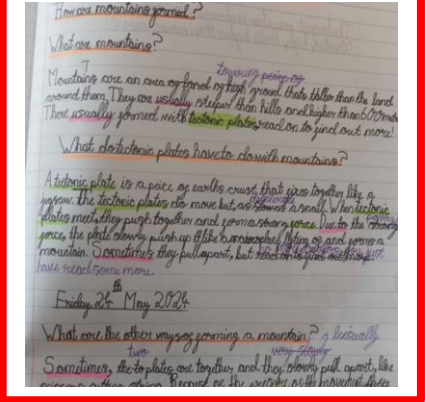 How are mountains formed?
What are mountains?
towering peice of
Mountains are an area of land of high ground thats taller than the land
around them. They are usually steeper than hills and higher than 600m
There usually formed with tectonic plates, read on to find out more!
What do tectonic plates have to do with mountains?
A tectonic plate is a peice of earths crust, that fixes together like a
jigsaw. the tectonic plates do move but as a snail. When tectonic
plates meet, they push together and form a strong force. Due to the strong
force, the plate slowly push up and forms a
mountain. Sometimes they pull apart, but
have read some more
Friday 24th May 2024
What are the other ways of forming a mountain?
two very slowly
Sometimes, the to plates are together and they slowly pull apart, like